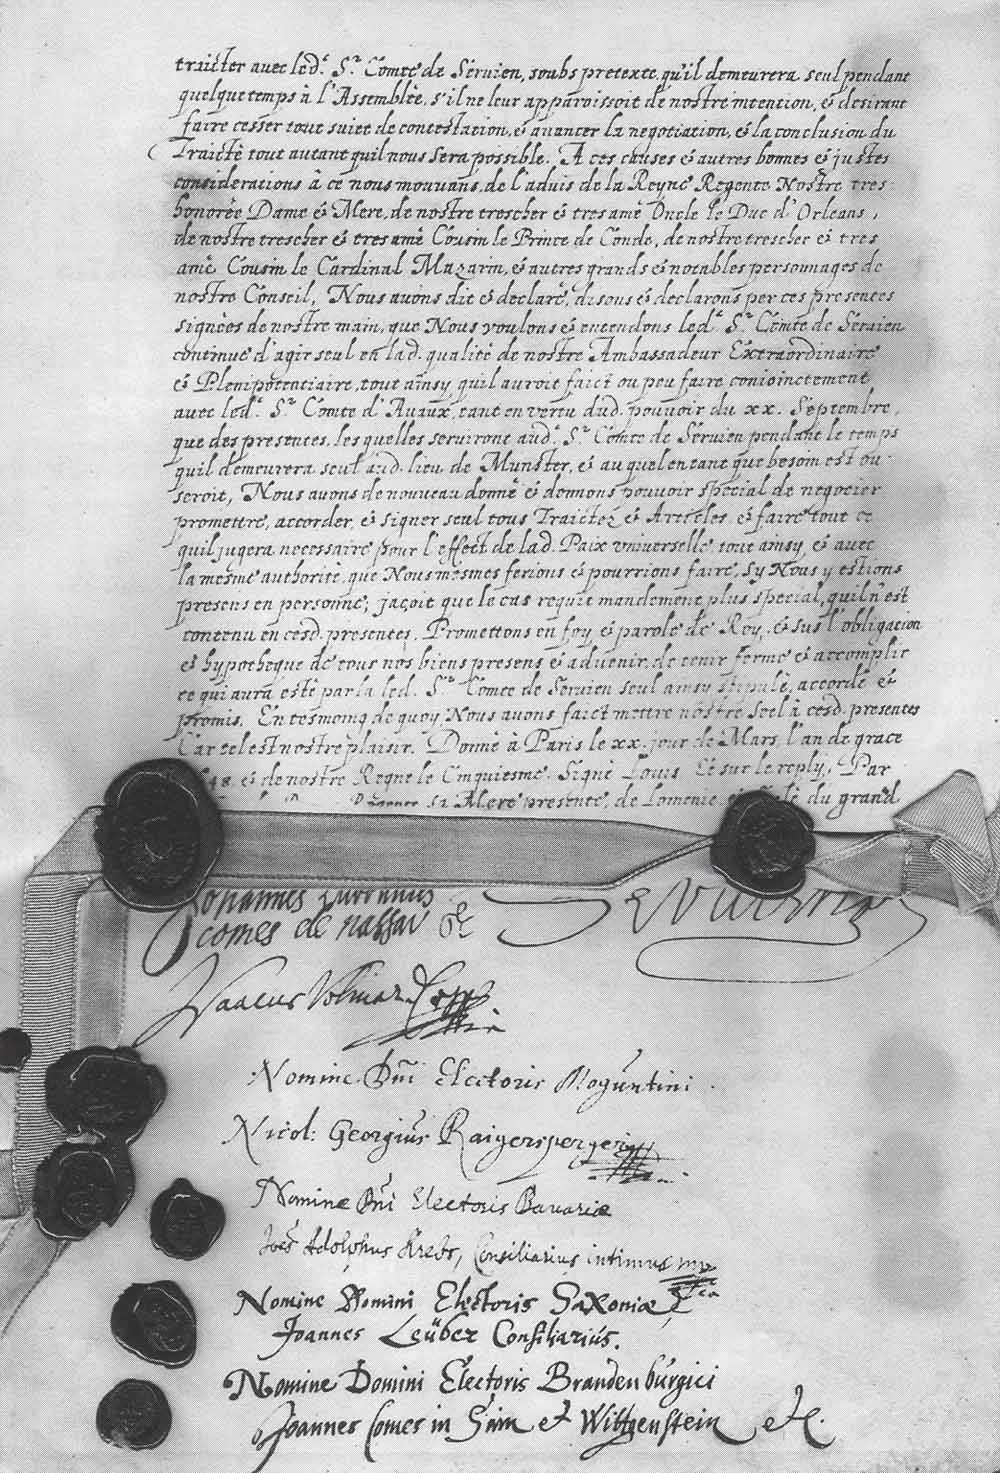 traicter avec led.t S.r Comte de Servien, soubs pretexte, qu'il demeurera seul pendant
quelque temps à l'Assemblée, s'il ne leur apparoissoit de nostre intention, & desirant
faire cesser tout suiet de contestation, & auancer la negotiation, & la conclusion du
Traicté tout autant quil nous sera possible. A ces causes & autres bonnes & justes
considerations à ce nous mouvans, de l'aduis de la Reyne Regente Nostre tres
honorée Dame & Mere, de nostre trescher & tres amé Oncle le Duc d'Orleans,
de nostre trescher & tres amé Cousin le Prince de Conde, de nostre trescher & tres
amé Cousin le Cardinal Mazarin, & autres grands & notables personnages de
nostre Conseil, Nous auons dit & declaré, disons & declarons per ces presentes
signées de nostre main, que Nous voulons & entendons led.t S.r Comte de Servien
continue d'agir seul en lad. qualité de nostre Ambassadeur Extraordinaire
& Plenipotentiaire, tout ainsy quil auroit faict ou peu faire conioinctement
avec led.t S.r Comte d'Auaux, tant en vertu dud. pouvoir du xx. Septembre,
que des presentes, les quelles serviront aud.t S.r Comte de Servien pendant le temps
quil demeurera seul aud. lieu de Munster, & au quel en tant que besoin est ou
seroit, Nous auons de nouveau donné & donnons pouvoir special de negocier
promettre, accorder, & signer seul tous Traictez & Articles, & faire tout ce
quil jugera necessaire pour l'effect de lad. Paix vniverselle, tout ainsy, & avec
la mesme authorité, que Nous mesmes ferions & pourrions faire, sy Nous y estions
presens en personne; jaçoit que le cas requit mandement plus special, quil n'est
contenu en cesd. presentes. Promettons en foy, & parole de Roy, & sus l'obligation
& hypotheque de tous nos biens presens & advenir, de tenir ferme & accomplir
ce qui aura esté par la led. S.r Comte de Servien seul ainsy stipulé, accordé &
promis. En tesmoing de quoy, Nous avons faict mettre nostre Seel à cesd. presentes
Car tel est nostre plaisir. Donné à Paris le xx. jour de Mars, l'an de grace
48, & de nostre Regne le Cinquiesme. Signé Louis. Et sur le reply, Par
Mere presente, de Lomenie, du grand
Johannes
comes de Nassau &c
Servien
Isaacus Volmar
Nomine Dñi Electoris Moguntini.
Nicol: Georgius Raigersperger
Nomine Dñi Electoris Bavariæ
Joës Adolphus Krebs, Consiliarius intimus mp
Nomine Domini Electoris Saxoniæ
Joannes Leüber Consiliariús.
Nomine Domini Electoris Brandenbúrgici
Joannes Comes in Sain et Wittgenstein etc.